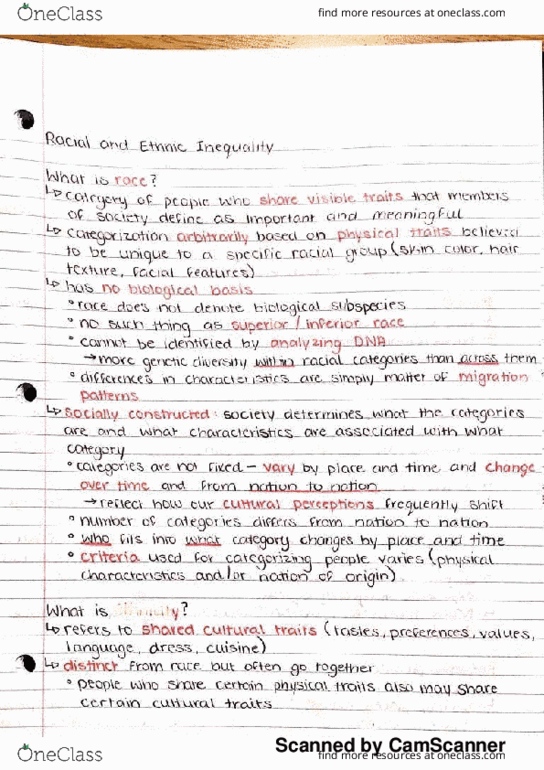 OneClass
find more resources at oneclass.com
Racial and Ethnic Inequality
What is race?
↳ category of people who share visible traits that members
of society define as important and meaningful
↳ categorization arbitrarily based on physical traits believed
to be unique to a specific racial group (skin color, hair
texture, facial features)
↳ has no biological basis
° race does not denote biological subspecies
° no such thing as superior/inferior race
° cannot be identified by analyzing DNA
→ more genetic diversity within racial categories than across them
° differences in characteristics are simply matter of migration
patterns
↳ socially constructed: society determines what the categories
are and what characteristics are associated with what
category
° categories are not fixed - vary by place and time and change
over time and from nation to nation
→ reflect how our cultural perceptions frequently shift
° number of categories differs from nation to nation
° who fits into what category changes by place and time
° criteria used for categorizing people varies (physical
characteristics and/or nation of origin)
What is ethnicity?
↳ refers to shared cultural traits (tastes, preferences, values,
language, dress, cuisine)
↳ distinct from race but often go together
° people who share certain physical traits also may share
certain cultural traits
Scanned by CamScanner
OneClass
find more resources at oneclass.com